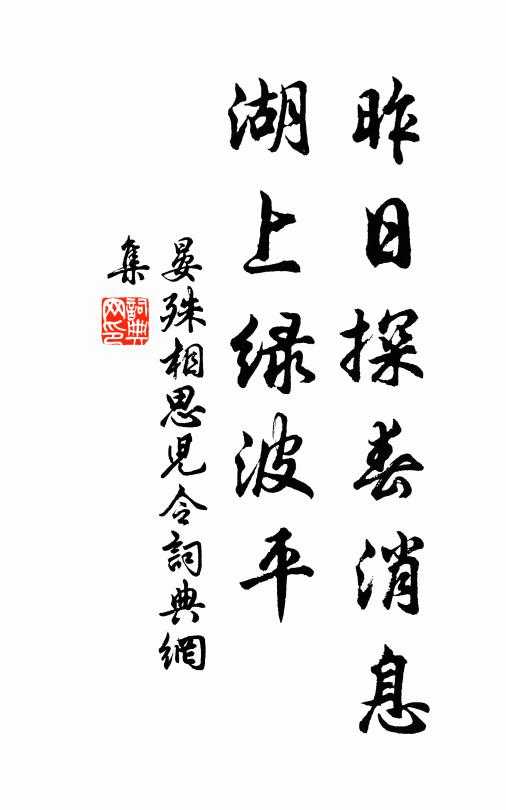 昨日探春消息
湖上緑波平
晏殊相思児令詞典網
集
詞典网印